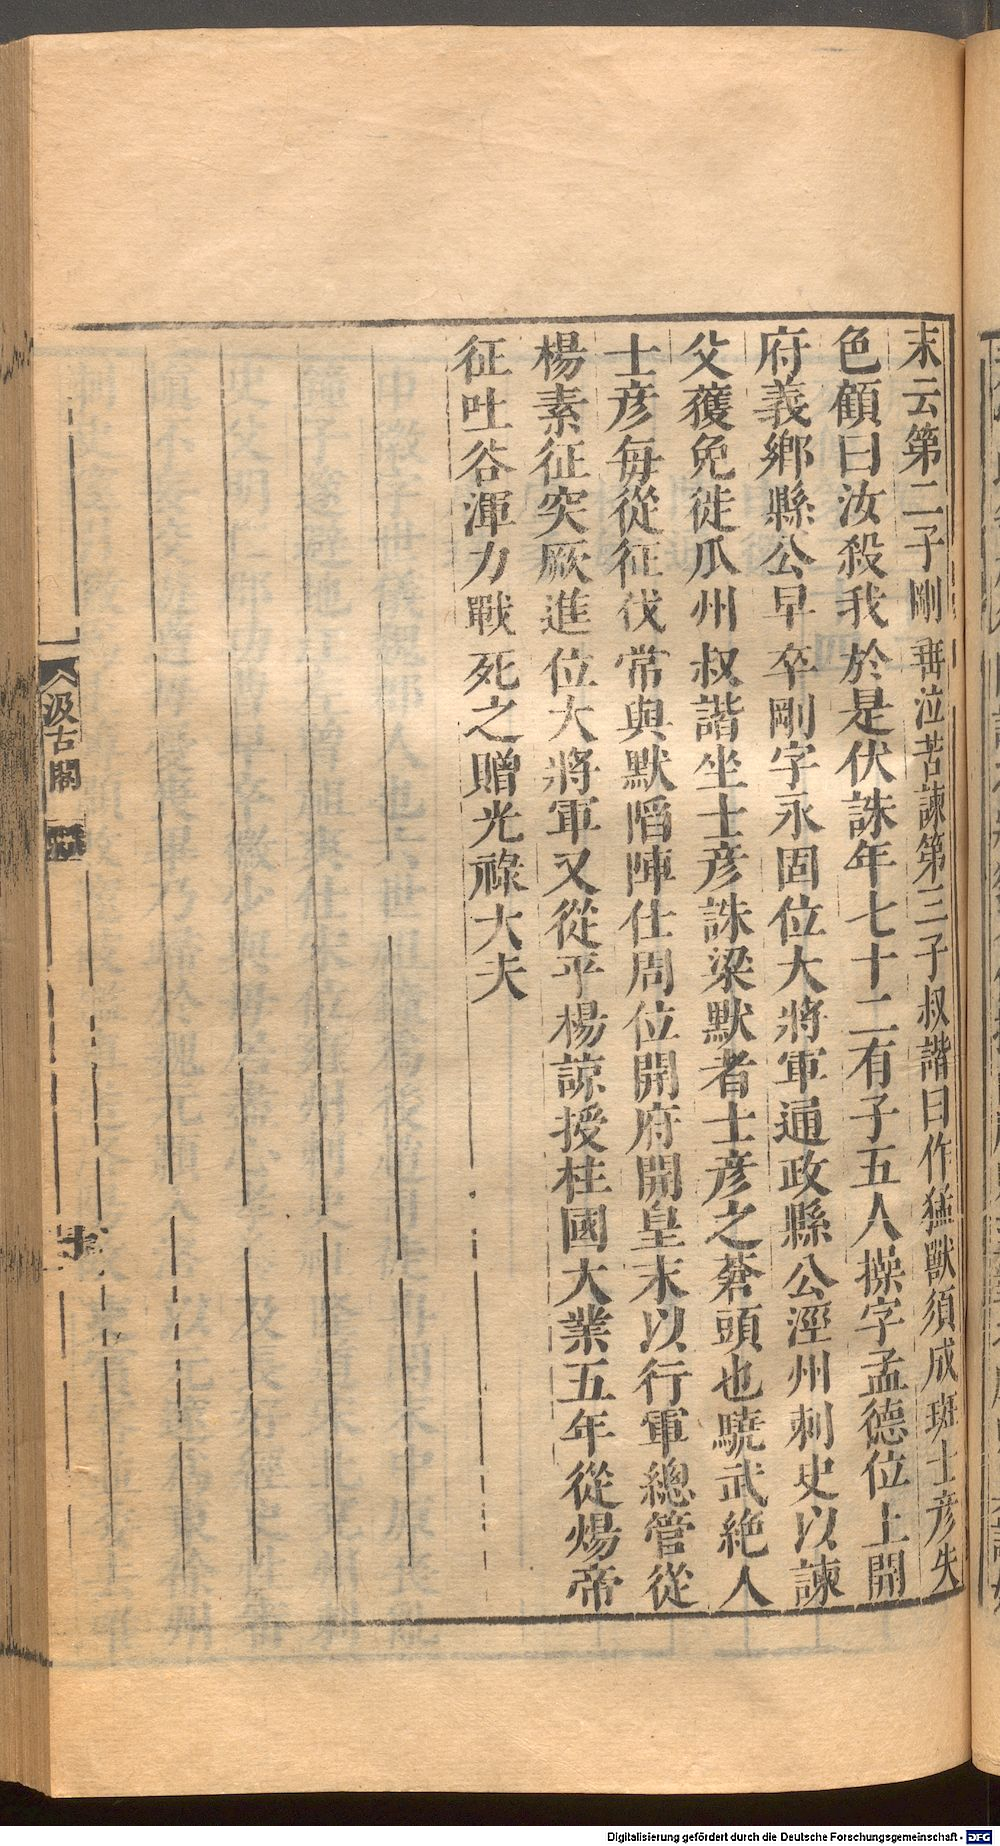 末云第二子剛垂泣苦諫第三子叔諧曰作猛獸須成斑士彦失
色顧曰汝殺我於是伏誅年七十二有子五人操字孟德位上開
府義鄉縣公早卒剛字永固位大將軍通政縣公涇州刺史以諫
父獲免徙瓜州叔諧坐士彦誅梁默者士彦之蒼頭也驍武絶人
士彦每從征伐常與默䧟陣仕周位開府開皇末以行軍總管從
楊素征突厥進位大將軍又從平楊諒授柱國大業五年從煬帝
征吐谷渾力戰死之贈光祿大夫
汲古閣
Digitalisierung gefördert durch die Deutsche Forschungsgemeinschaft - DFG